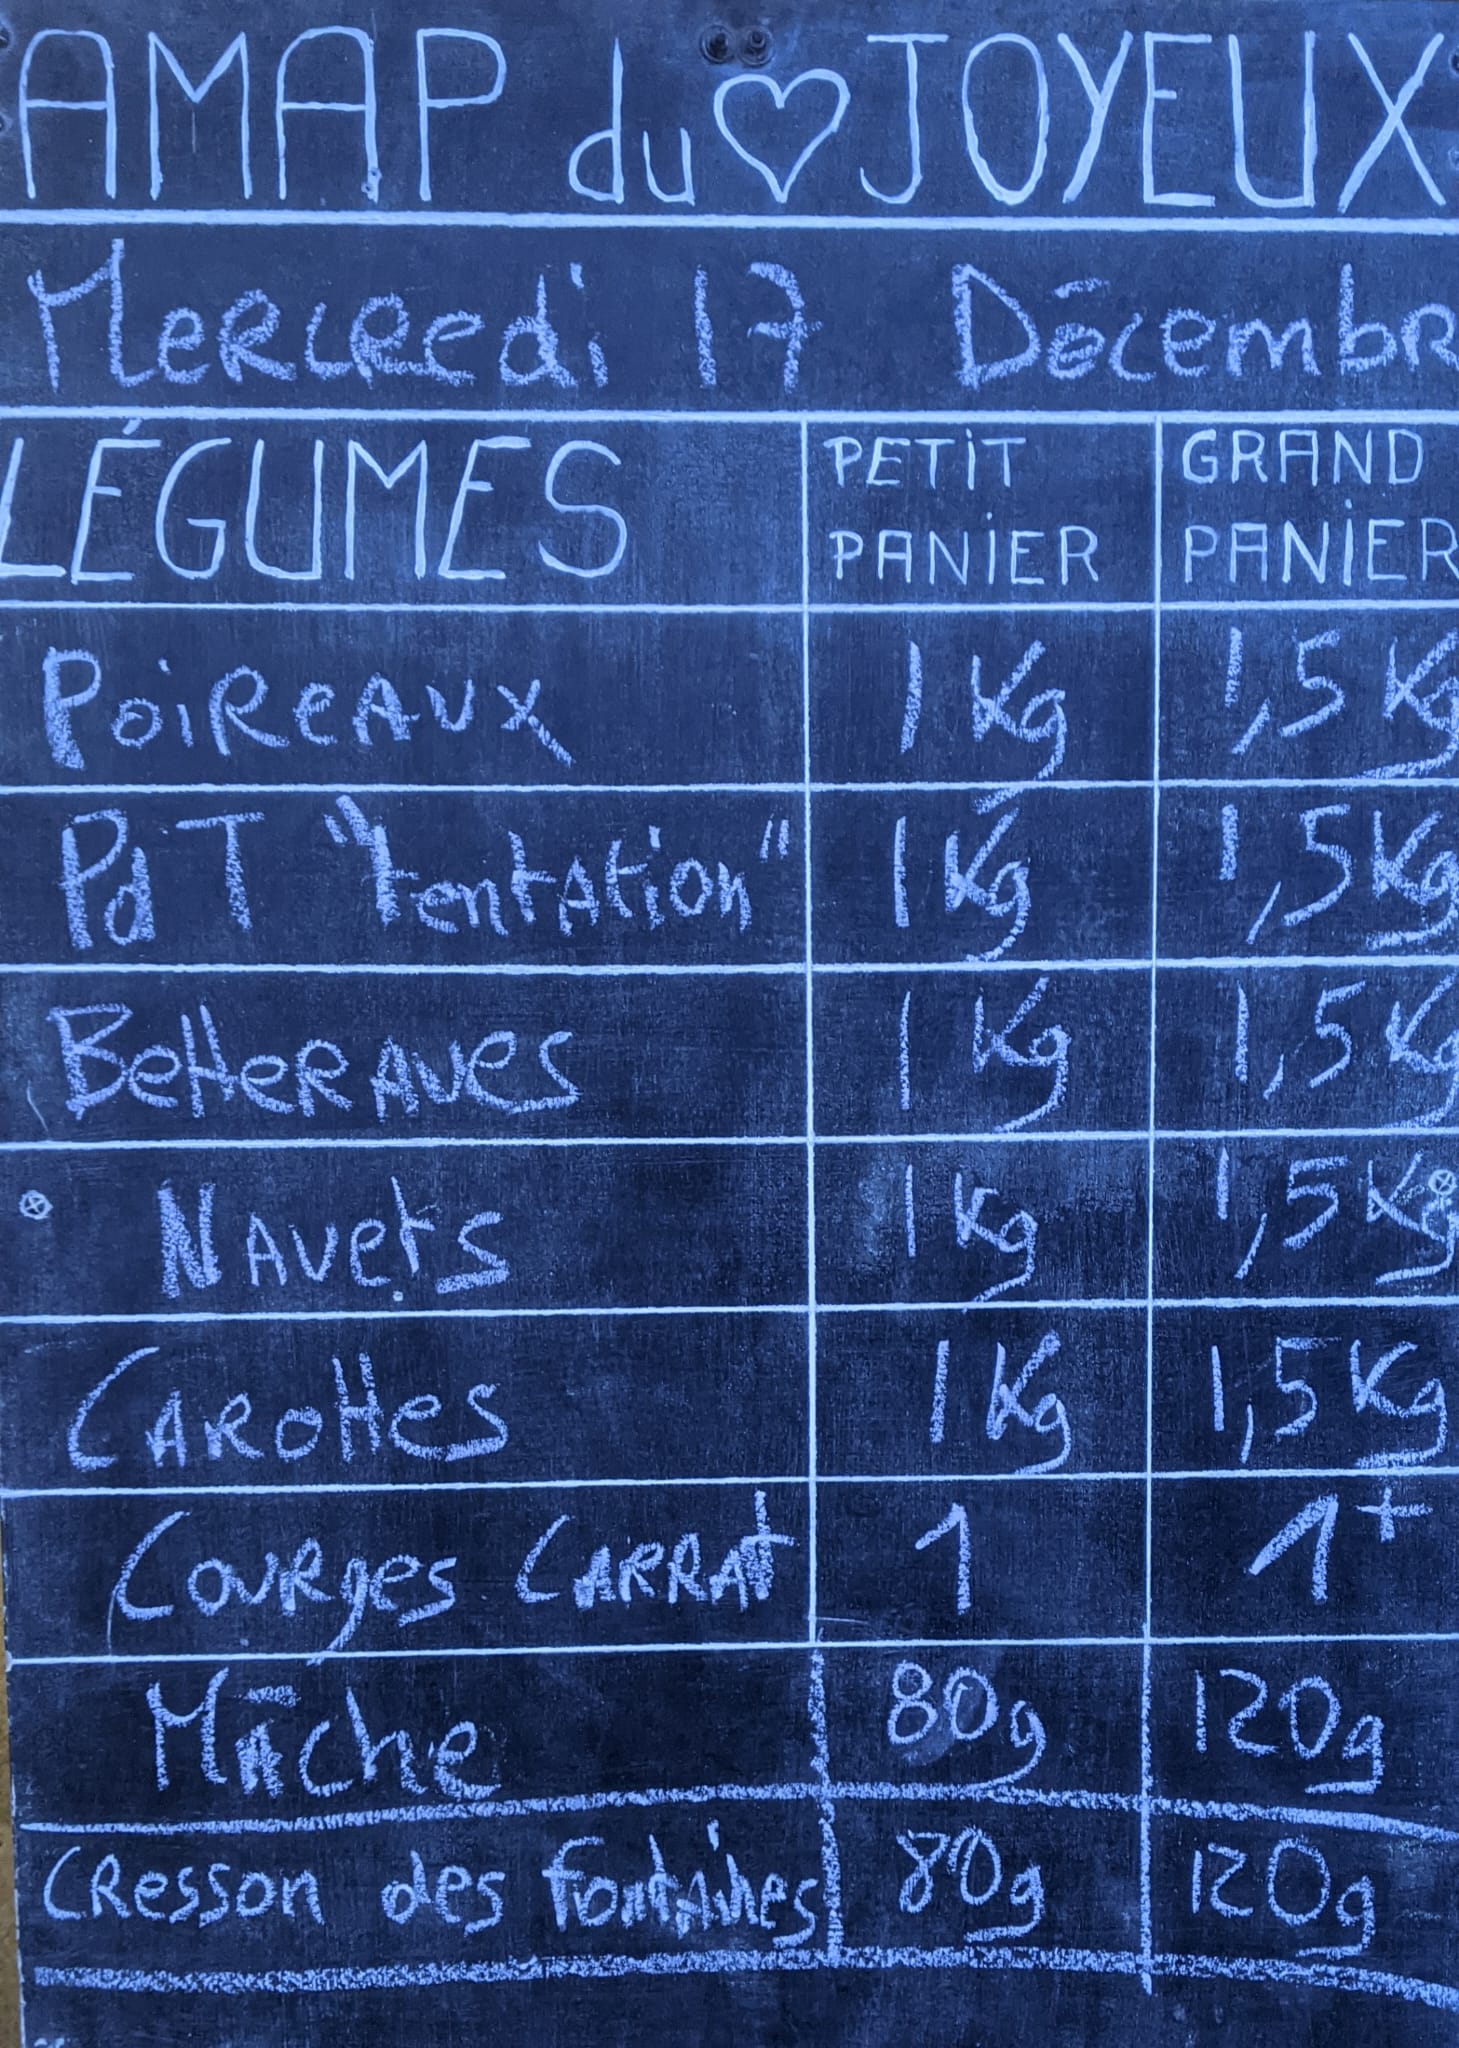 AMAP du ♡ JOYEUX
Mercredi 17 Décembr
LÉGUMES PETIT PANIER GRAND PANIER
Poireaux 1 Kg 1,5 Kg
PdT "tentation" 1 Kg 1,5 Kg
Betteraves 1 Kg 1,5 Kg
Navets 1 Kg 1,5 Kg
Carottes 1 Kg 1,5 Kg
Courges Carrat 1 1+
Mâche 80g 120g
Cresson des fontaines 80g 120g